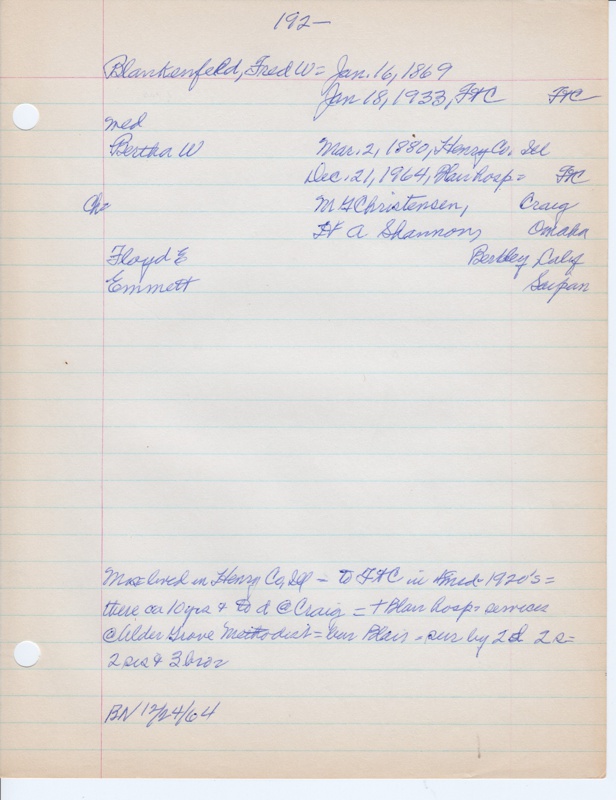 192-
Blankenfeld, Fred W = Jan. 16, 1869
Jan 18, 1933, FtC FtC
med
Bertha W Mar. 2, 1880, Henry Co. Ill
Dec. 21, 1964, Blair hosp = FtC
Ch= M F Christensen, Craig
H A Shannon, Omaha
Floyd E Berkley, Calif
Emmett Saipan
lived in Henry Co, Ill = to FtC in 1920's =
there ca 10 yrs & to d @ Craig = + Blair hosp = services
@ Alder Grove Methodist = bur Blair - sur by 2 d 2 s =
2 sis & 3 bror
BN 12/24/64